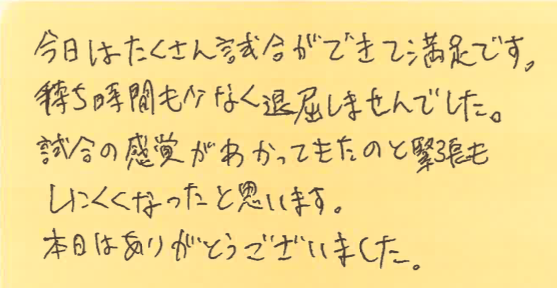 今日はたくさん試合ができて満足です。
待ち時間も少なく退屈しませんでした。
試合の感覚がわかってきたのと緊張も
しにくくなったと思います。
本日はありがとうございました。